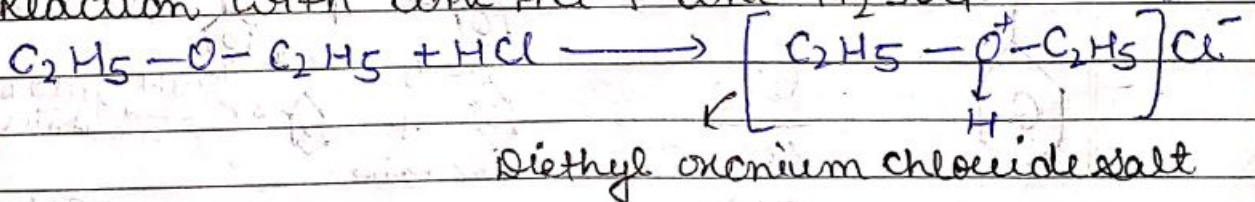 Reaction with conc HCl & conc H2SO4
C2H5 – O – C2H5 + HCl ⟶ [ C2H5 – O⁺ – C2H5 ] Cl⁻
↓
H
Diethyl oxonium chloride salt